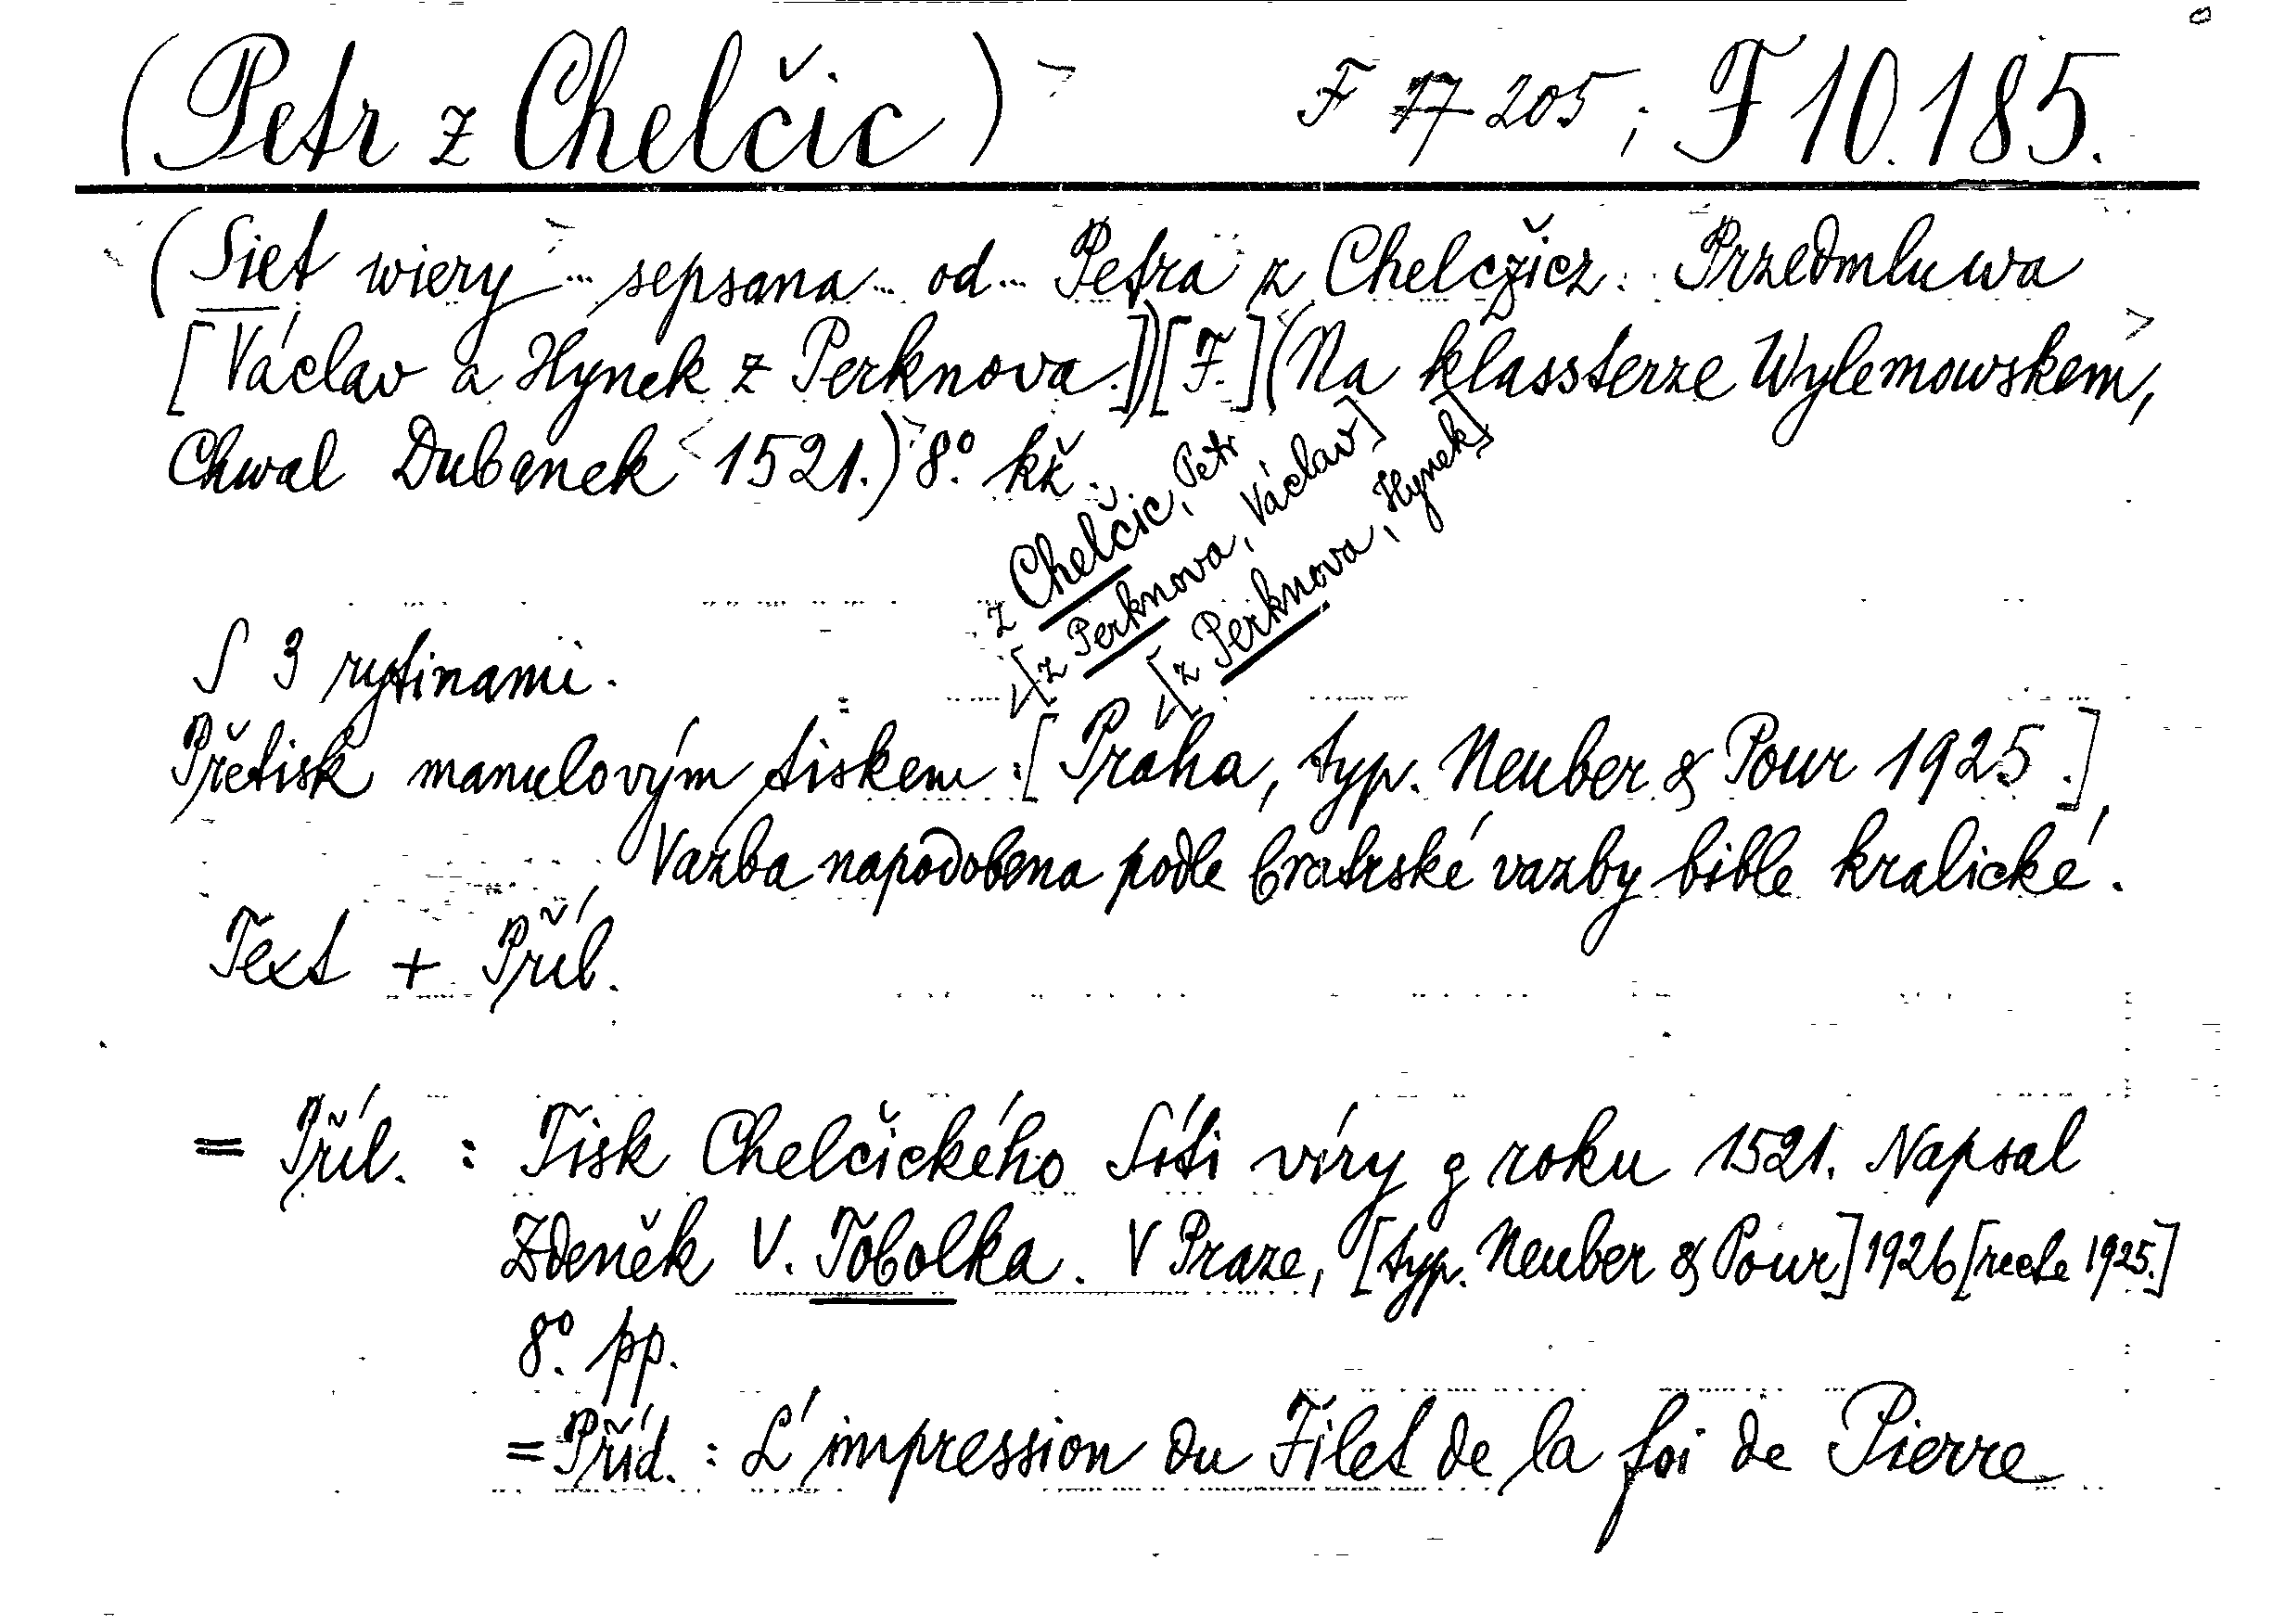 (Petr z Chelčic) F 17205; F 10.185.
(Siet wiery ... sepsana ... od ... Petra z Chelczicz. Przedmluwa
[Václav a Hynek z Perknova.])[F.](Na klassterze Wylemowskem,
Chwal Dubanek 1521.) 8° kž.
z Chelčic, Petr
[z Perknova, Václav]
[z Perknova, Hynek]
S 3 rytinami.
Přetisk manulovým tiskem: [Praha, typ. Neuber & Pour 1925.]
Vazba napodobena podle bratrské vazby bible kralické.
Text + Příl.
= Příl. : Tisk Chelčického Síti víry z roku 1521. Napsal
Zdeněk V. Tobolka. V Praze, [typ. Neuber & Pour] 1926 [recte 1925.]
8° pp.
= Příd. : L'impression du Filet de la foi de Pierre